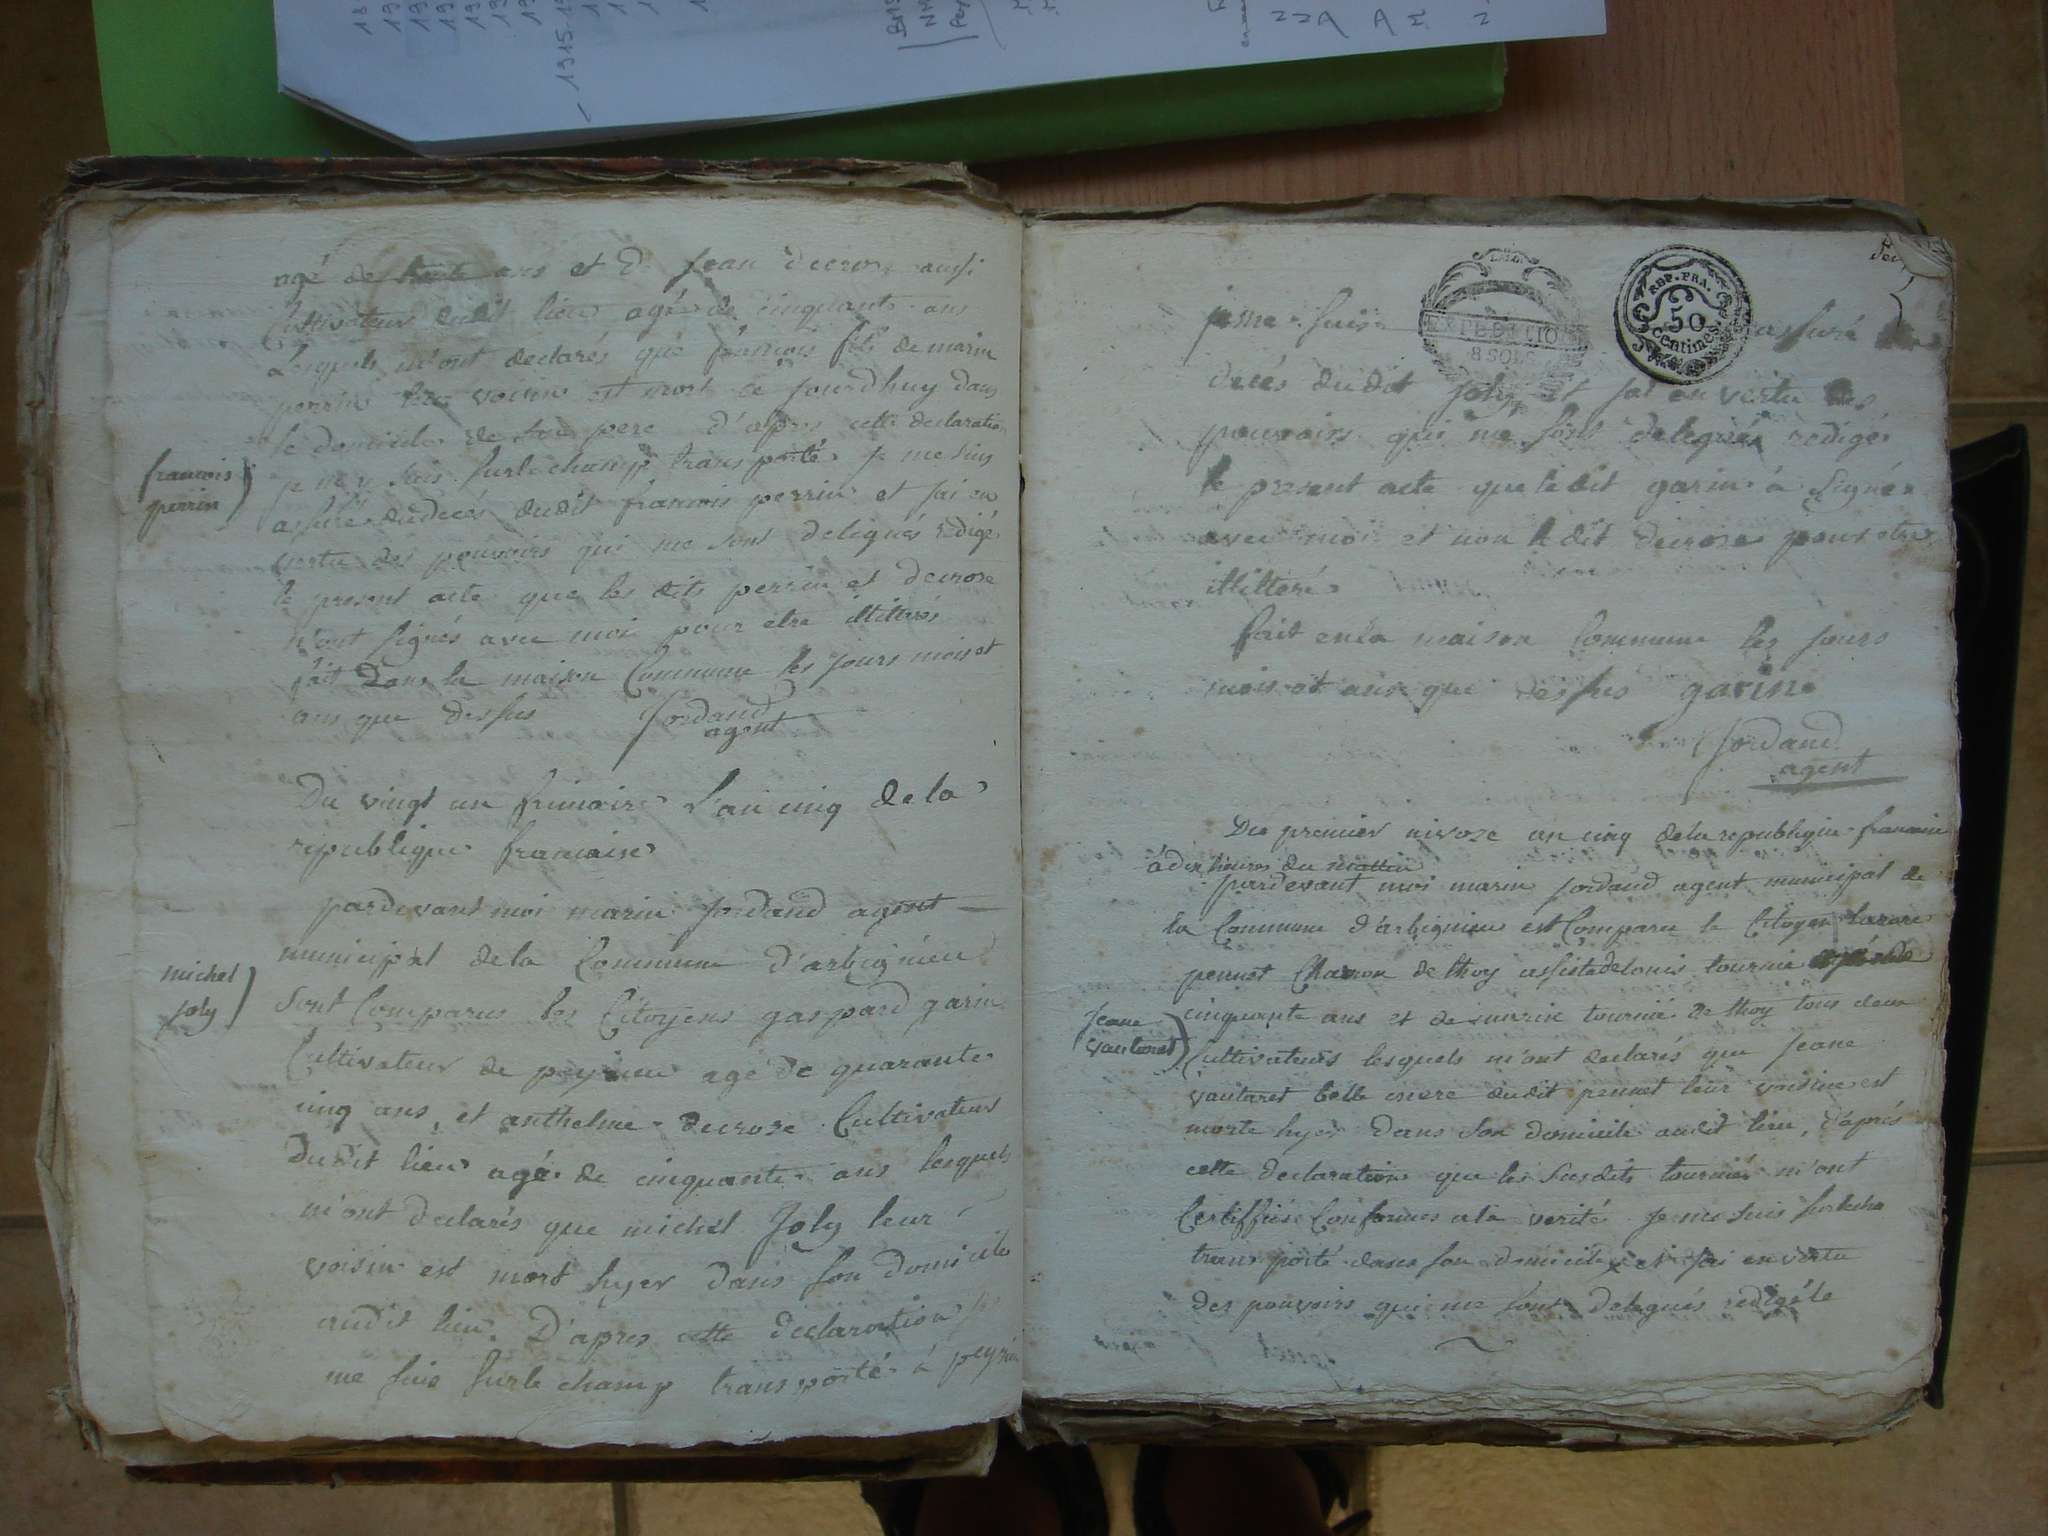 agé de trente ans et de Jean decrose aussi
Cultivateur dudit lieu agé de cinquante ans
Lesquels m'ont declarés que francois fils de marin
perrin leur voisin est mort ce jourdhuy dans
le domicile de son pere d'apres cette declaration
je me suis surlechamp transporté je me suis
assuré dudecés dudit francois perrin et jai en
vertu des pouvoirs qui me sont delegués redigé
le present acte que les dits perrin et decrose
n'ont signés avec moi pour etre illiterés
fait Dans la maison Commune les jours mois et
ans que dessus Jordand
agent
francois
perrin
Du vingt un frimaire L'an cinq de la
republique francaise
pardevant moi marin Jordand agent
municipal de la Commune d'arbignieu
Sont Comparus les Citoyens gaspard garin
Cultivateur de peyzieu agé de quarante
cinq ans, et anthelme decrose Cultivateur
Dudit lieu agé de cinquante ans lesquels
m'ont declarés que michel Joly leur
voisin est mort hyer dans son domicile
audit lieu. D'apres cette declaration je
me suis surle champ transporté à peyzieu
michel
joly
EXPEDITION
8 SOLS
REP. FRA.
50
Centimes
je me suis assuré
decés dudit Joly et jai en vertu des
pouvoirs qui me sont delegués redigé
le present acte que le dit garin à Signé
avec moi et non le dit decrose pour etre
illitteré
fait enla maison Commune les jours
mois et ans que dessus garin
Jordand
agent
Du premier nivose an cinq dela republique francaise
à dix heures du mattin
pardevant moi marin Jordand agent municipal de
la Commune d'arbignieu est Comparu le Citoyen Lazare
pennet Charon de thoy assisté de louis tournié
cinquante ans et de marin tournié de thoy tous deux
Cultivateurs lesquels m'ont declarés que Jeane
vautaret belle mere dudit pennet leur voisine est
morte hyer dans son domicile audit lieu, d'après
cette declaration que les susdits tourniés m'ont
Certiffiés Conformes ala verité je me suis surlecha
transporté dans son domicile et jai en vertu
des pouvoirs qui me sont delegués redigé le
Jeane
vautaret
1915-19